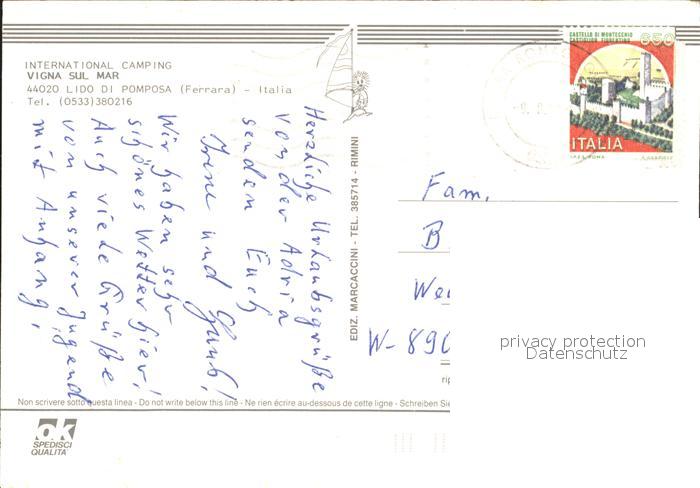 INTERNATIONAL CAMPING
VIGNA SUL MAR
44020 LIDO DI POMPOSA (Ferrara) - Italia
Tel. (0533)380216
Herzliche Urlaubsgrüße
von der Adria
senden Euch
Irene und
Wir haben sehr
schönes Wetter hier!
Auch viele Grüße
von unserer Jugend
mit Anhang,
EDIZ. MARCACCINI - TEL. 385714 - RIMINI
CASTELLO DI MONTECCHIO
CASTIGLION FIORENTINO
650
ITALIA
Fam.
B
We
W-890
privacy protection
Datenschutz
rip
Non scrivere sotto questa linea - Do not write below this line - Ne rien écrire au-dessous de cette ligne - Schreiben Sie
ok
SPEDISCI
QUALITA'